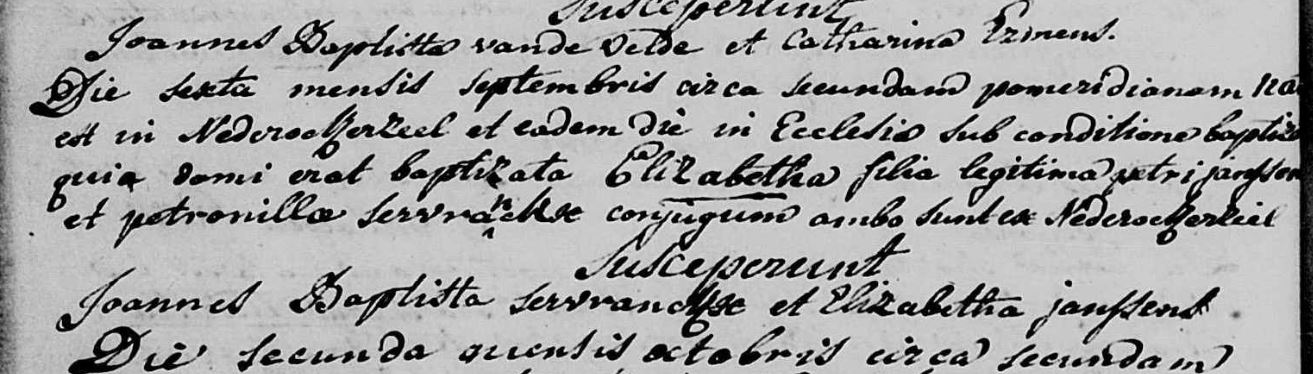 Susceperunt
Joannes Baptista vande Velde et Catharina Ermens.
Die sexta mensis septembris circa secundam pomeridianam na
est in Nederockerzeel et eadem die in Ecclesia sub conditione baptiza
quia domi erat baptizata Elizabetha filia legitima petri janssen
et petronillæ servranckx conjugum ambo sunt ex Nederockerzeel
Susceperunt
Joannes Baptista servranckx et Elizabetha janssens
Die secunda mensis octobris circa secundam